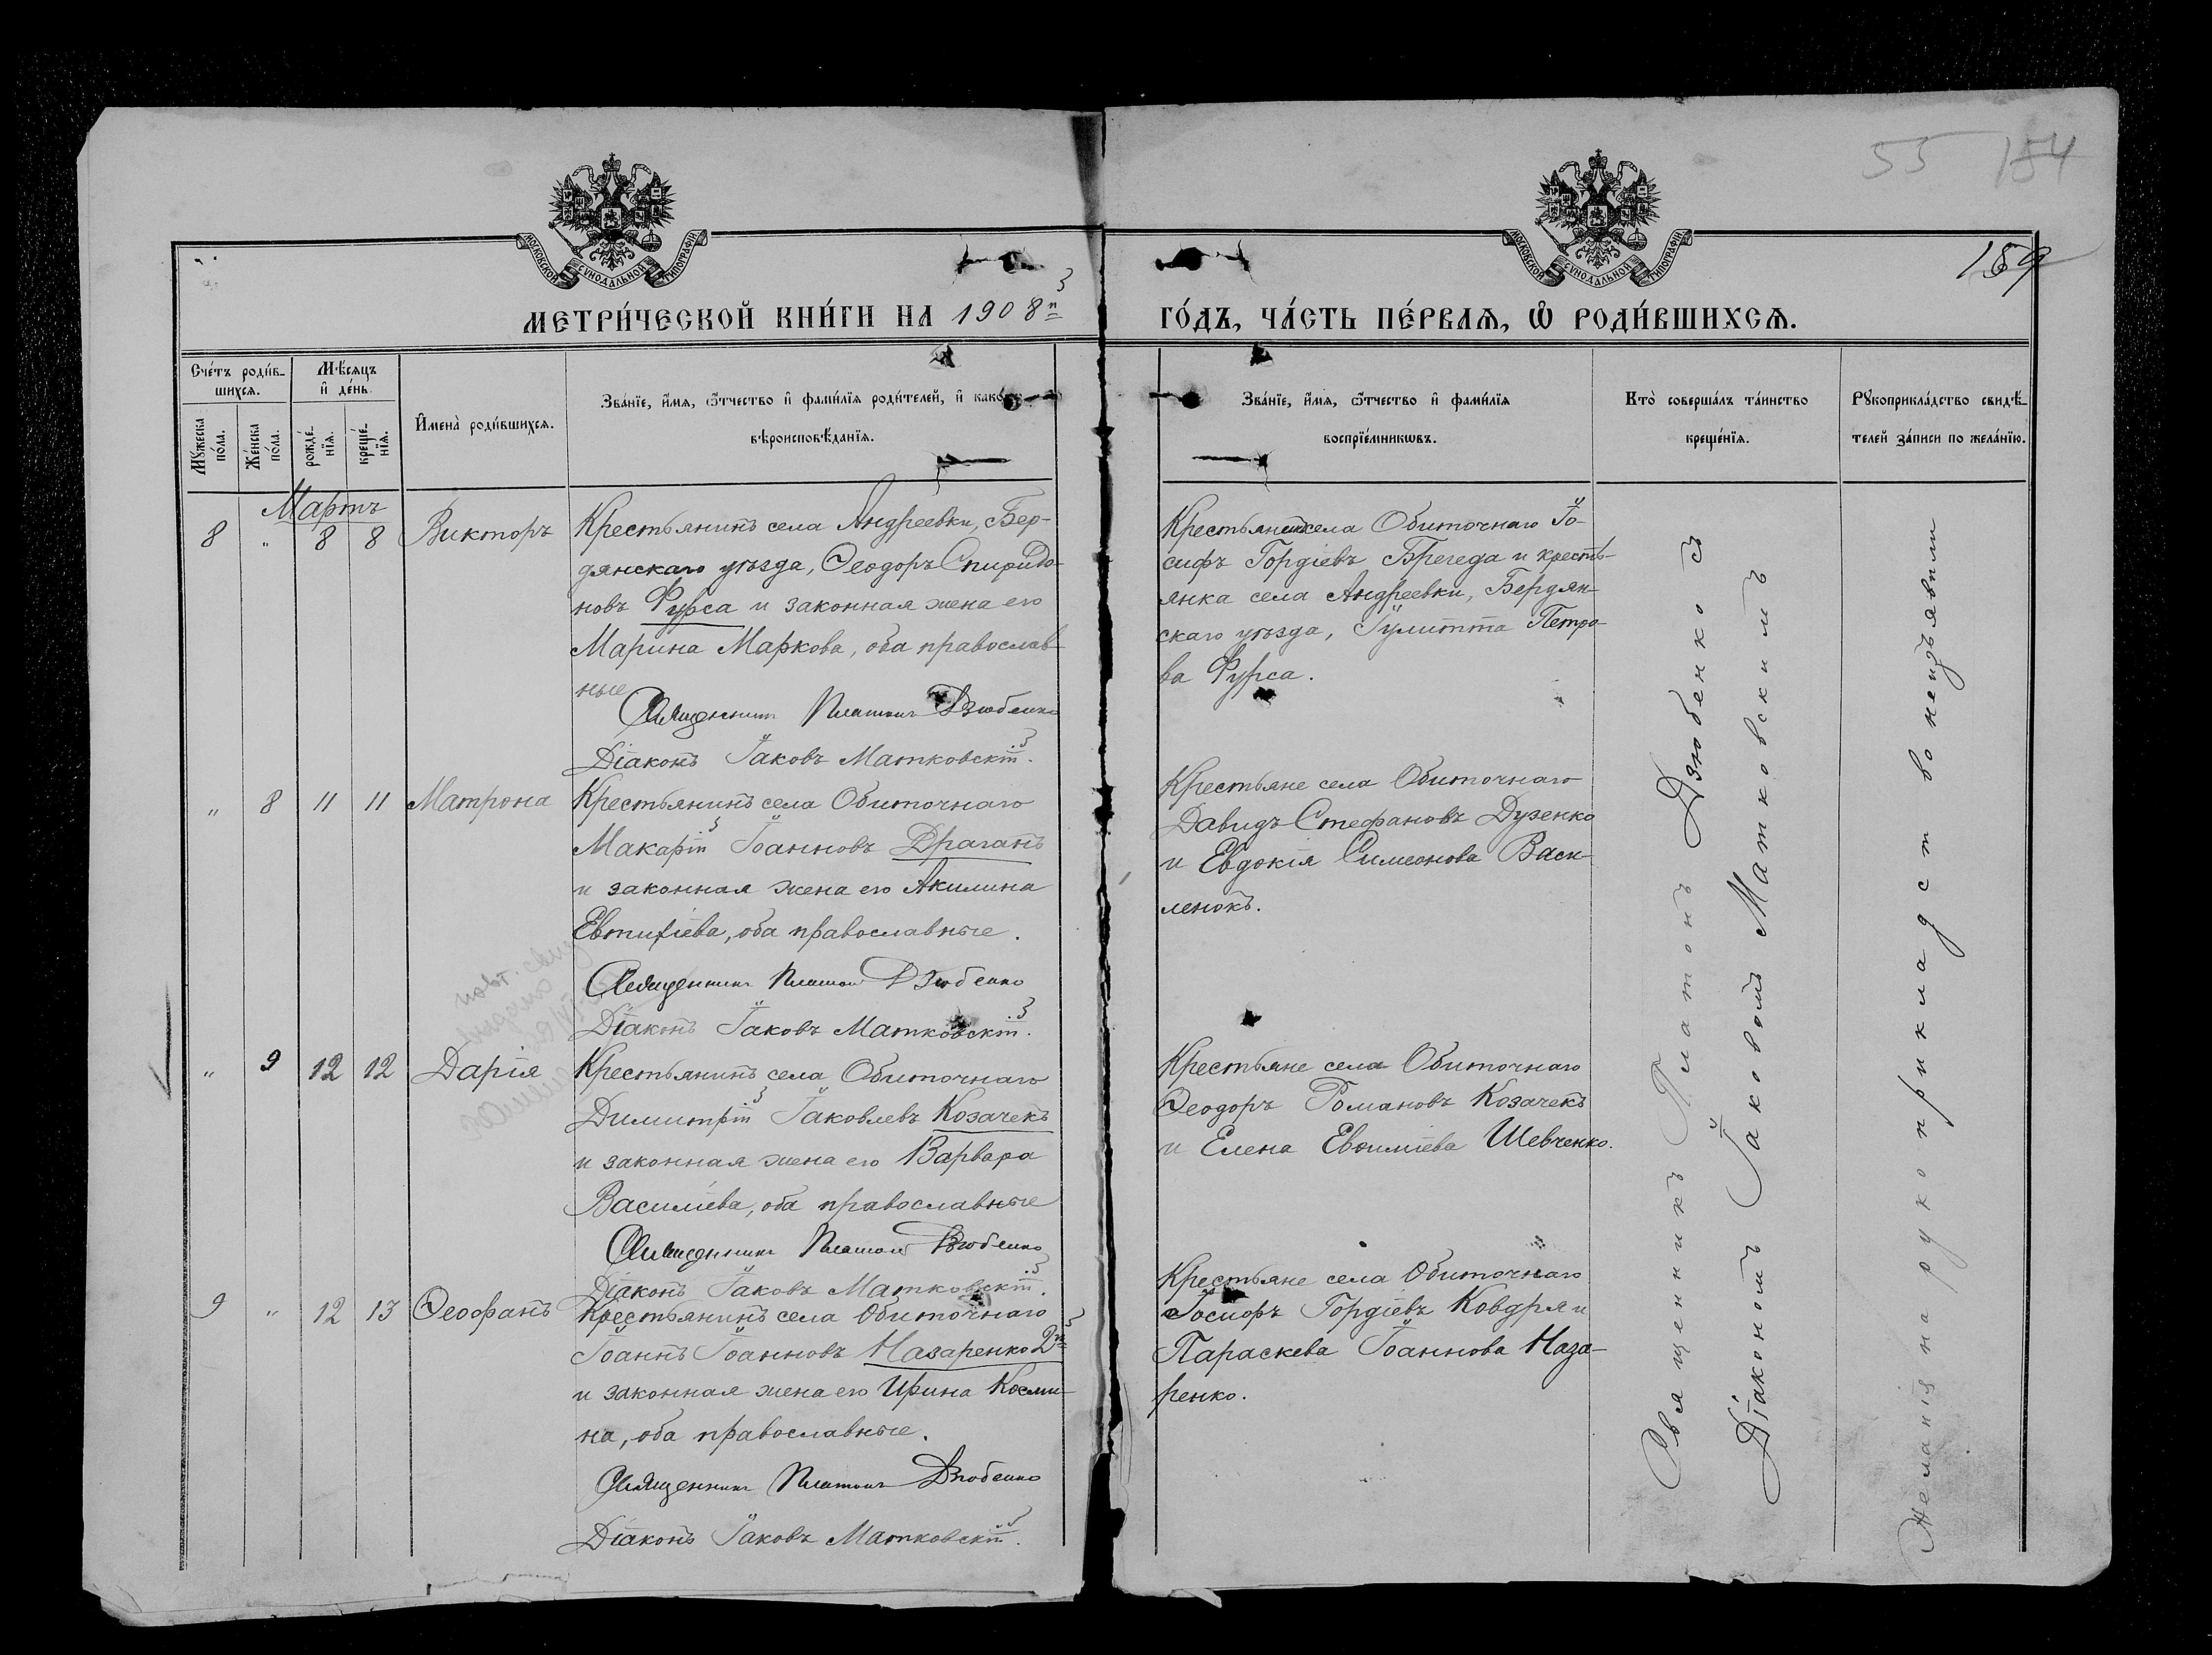 55 154
159
МОСКОВСКОЙ СѴНОДАЛЬНОЙ ТИПОГРАФІИ
МОСКОВСКОЙ СѴНОДАЛЬНОЙ ТИПОГРАФІИ
МЕТРИ́ЧЕСКОЙ КНИ́ГИ НА 1908й
ГО́ДЪ, ЧА́СТЬ ПЕ́РВАѦ, Ѡ РОДИ́ВШИХСѦ.
Сче́тъ роди́в-
шихсѧ.
Мꙋ́жеска по́ла.
Же́нска по́ла.
Мѣ́сѧцъ
и҆ де́нь.
рожде́-
нїѧ.
креще́-
нїѧ.
И҆мена̀ роди́вшихсѧ.
Зва́нїе, и҆́мѧ, ѻ҆́тчество и҆ фами́лїѧ роди́телей, и҆ како́гѡ
вѣроисповѣ́данїѧ.
Зва́нїе, и҆́мѧ, ѻ҆́тчество и҆ фами́лїѧ
воспрїе́мникѡвъ.
Кто̀ соверша́лъ та́инство
креще́нїѧ.
Рꙋкоприкла́дство свидѣ́-
телей за́писи по жела́нїю.
Мартъ
8 " 8 8 Викторъ
Крестьянинъ села Андреевки, Бер-
дянскаго уѣзда, Ѳеодоръ Спиридо-
новъ Фурса и законная жена его
Марина Маркова, оба православ-
ные
Священникъ Платонъ Дзюбенко
Діаконъ Іаковъ Матковскій.
Крестьянинъ села Обиточнаго Іо-
сифъ Гордіевъ Брегеда и кресть-
янка села Андреевки, Бердян-
скаго уѣзда, Іулитта Петро-
ва Фурса.
" 8 11 11 Матрона
Крестьянинъ села Обиточнаго
Макарій Іоанновъ Драганъ
и законная жена его Акилина
Евтихіева, оба православные.
Священникъ Платонъ Дзюбенко
Діаконъ Іаковъ Матковскій.
Крестьяне села Обиточнаго
Давидъ Стефановъ Дузенко
и Евдокія Симеонова Васи-
ленокъ.
повт.
" 9 12 12 Дарія
Крестьянинъ села Обиточнаго
Димитрій Іаковлевъ Козачекъ
и законная жена его Варвара
Василіева, оба православные
Священникъ Платонъ Дзюбенко
Діаконъ Іаковъ Матковскій.
Крестьяне села Обиточнаго
Ѳеодоръ Романовъ Козачекъ
и Елена Евѳиміева Шевченко.
9 " 12 13 Ѳеофанъ
Крестьянинъ села Обиточнаго
Іоаннъ Іоанновъ Назаренко 2й
и законная жена его Ирина Косми-
на, оба православные.
Священникъ Платонъ Дзюбенко
Діаконъ Іаковъ Матковскій.
Крестьяне села Обиточнаго
Іосифъ Гордіевъ Ковдря и
Параскева Іоаннова Наза-
ренко.
Священникъ Платонъ Дзюбенко съ
Діакономъ Іаковомъ Матковскимъ
Желанія на рукоприкладство не изъявили